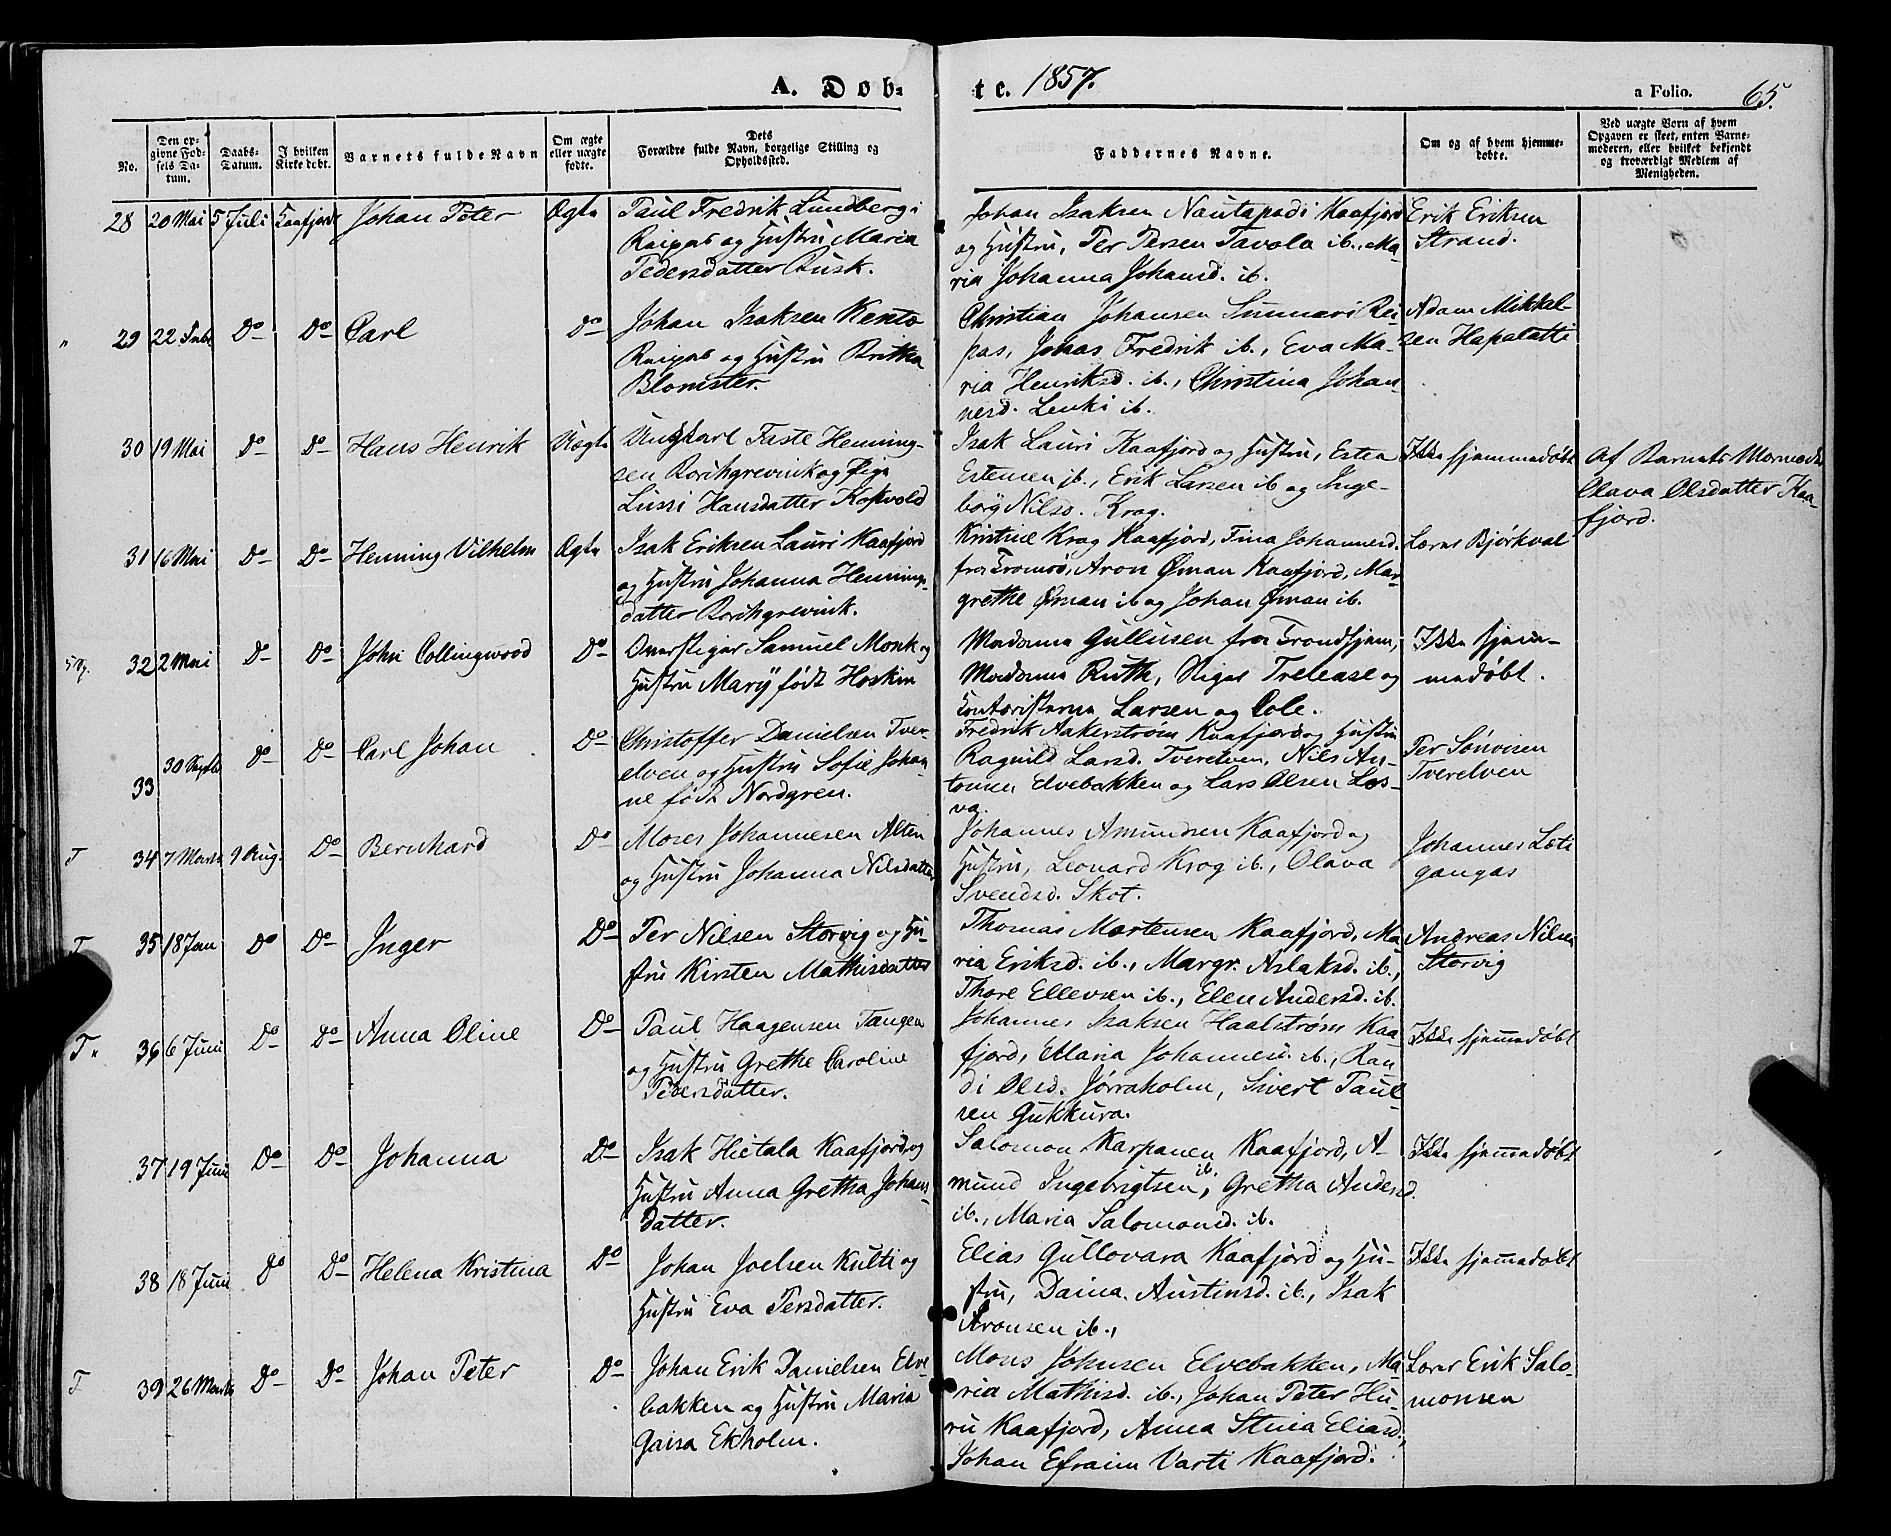 A. Døb-
te. 1857.
a Folio. 65.
No.
Den op-
givne Fød-
sels Da-
tum.
Daabs-
Datum.
I hvilken
Kirke døbt.
Barnets fulde Navn
Om ægte
eller uægte
fødte.
Dets
Forældre fulde Navn, borgelige Stilling og
Opholdssted.
Faddernes Navne.
Om og af hvem hjemme-
døbte.
Ved uægte Børn af hvem
Opgaven er skeet, enten Barne-
moderen, eller hvilket bekjendt
og troværdigt Medlem af
Menigheden.
28 20 Mai 5 Juli Kaafjord Johan Peter Ægte
Paul Fredrik Lundberg i
Raipas og Hustru Maria
Pedersdatter Rusk.
Johan Isaksen Nautapodi Kaafjord
og Hustru, Per Persen Tavola ib., Ma-
ria Johanna Johansd. ib.
Erik Eriksen
Strand.
29 22 Febr Do Do Carl Do
Johan Isaksen Kento
Raipas og Hustru Britha
Blomster.
Christian Johansen Sunnari Rei-
pas, Jonas Fredrik ib., Eva Ma-
ria Henriksd. ib., Christina Johan-
nesd. Lenki ib.
Adam Mikkel-
sen Hapalatti
30 19 Mai Do Do Hans Henrik Uægte
Ungkarl Faste Henning-
sen Borchgrevink og Pige
Lussi Hansdatter Kokvold
Isak Lauri Kaafjord og Hustru, Ester
Estensen ib., Erik Larsen ib og Inge-
borg Nilsd. Krag.
Ikke hjemmedøbt
Af Barnets Mormoder
Olava Olsdatter Kaa-
fjord.
31 16 Mai Do Do Henning Vilhelm Ægte
Isak Eriksen Lauri Kaafjord
og Hustru Johanna Hennings-
datter Borchgrevink.
Kristine Krag Kaafjord, Fina Johannesd.
fra Tromsø, Aron Öman Kaafjord, Mar-
grethe Öman ib og Johan Öman ib.
Lærer Bjørkval
32 2 Mai Do Do John Collingwood Do
Overstiger Samuel Monk og
Hustru Mary født Hoskin
Madame Gullusen fra Trondhjem,
Madame Ruth, Stiger Trelease og
Contoristerne Larsen og Cole.
Ikke hjem-
medøbt.
33 30 Do Do Carl Johan Do
Christoffer Danielsen Tver-
elven og Hustru Sofie Johan-
ne født Nordgren.
Fredrik Aakerstrøm Kaafjord og Hustru
Ragnild Larsd. Tverelven, Nils An-
tonsen Elvebakken og Lars Olsen Læs-
va.
Per Sønvisen
Tverelven
T 34 7 Marts 9 Aug. Do Bernhard Do
Moses Johannesen Alten
og Hustru Johanna Nilsdatter
Johannes Amundsen Kaafjord og
Hustru, Leonard Krog ib., Olava
Svendsd. Skot.
Johannes Læti
gangas
T 35 18 Jan Do Do Inger Do
Per Nilsen Storvig og Hu-
stru Kirsten Mathisdatter
Thomas Mortensen Kaafjord, Ma-
ria Eriksd. ib., Margr. Aslaksd. ib.,
Thore Ellevsen ib., Elen Andersd. ib.
Andreas Nilsen
Storvig
T. 36 6 Juni Do Do Anna Oline Do
Paul Haagensen Tangen
og Hustru Grethe Caroline
Petersdatter.
Johannes Isaksen Haalstrøm Kaa-
fjord, Maria Johannesd. ib., Ran-
di Olsd. Jørraholm, Sivert Paul-
sen Gukkura.
Ikke hjemmedøbt
37 19 Juni Do Do Johanna Do
Isak Hietala Kaafjord og
Hustru Anna Gretha Johans-
datter.
Salomon Karpanen Kaafjord, A-
mund Ingebrigtsen ib., Gretha Andersd.
ib., Maria Salomonsd. ib.
Ikke hjemmedøbt
38 18 Juni Do Do Helena Kristina Do
Johan Joelsen Kulti og
Hustru Eva Persdatter.
Elias Gullovara Kaafjord og Hu-
stru, Daina Austinsd. ib., Isak
Aronsen ib.,
Ikke hjemmedøbt
T 39 26 Marts Do Do Johan Peter Do
Johan Erik Danielsen Elve-
bakken og Hustru Maria
Gaisa Ekholm.
Mons Johnsen Elvebakken, Ma-
ria Mathisd. ib., Johan Peter Hu-
ru Kaafjord, Anna Stina Eliasd.,
Johan Efraim Varti Kaafjord.
Lærer Erik Salo-
monsen